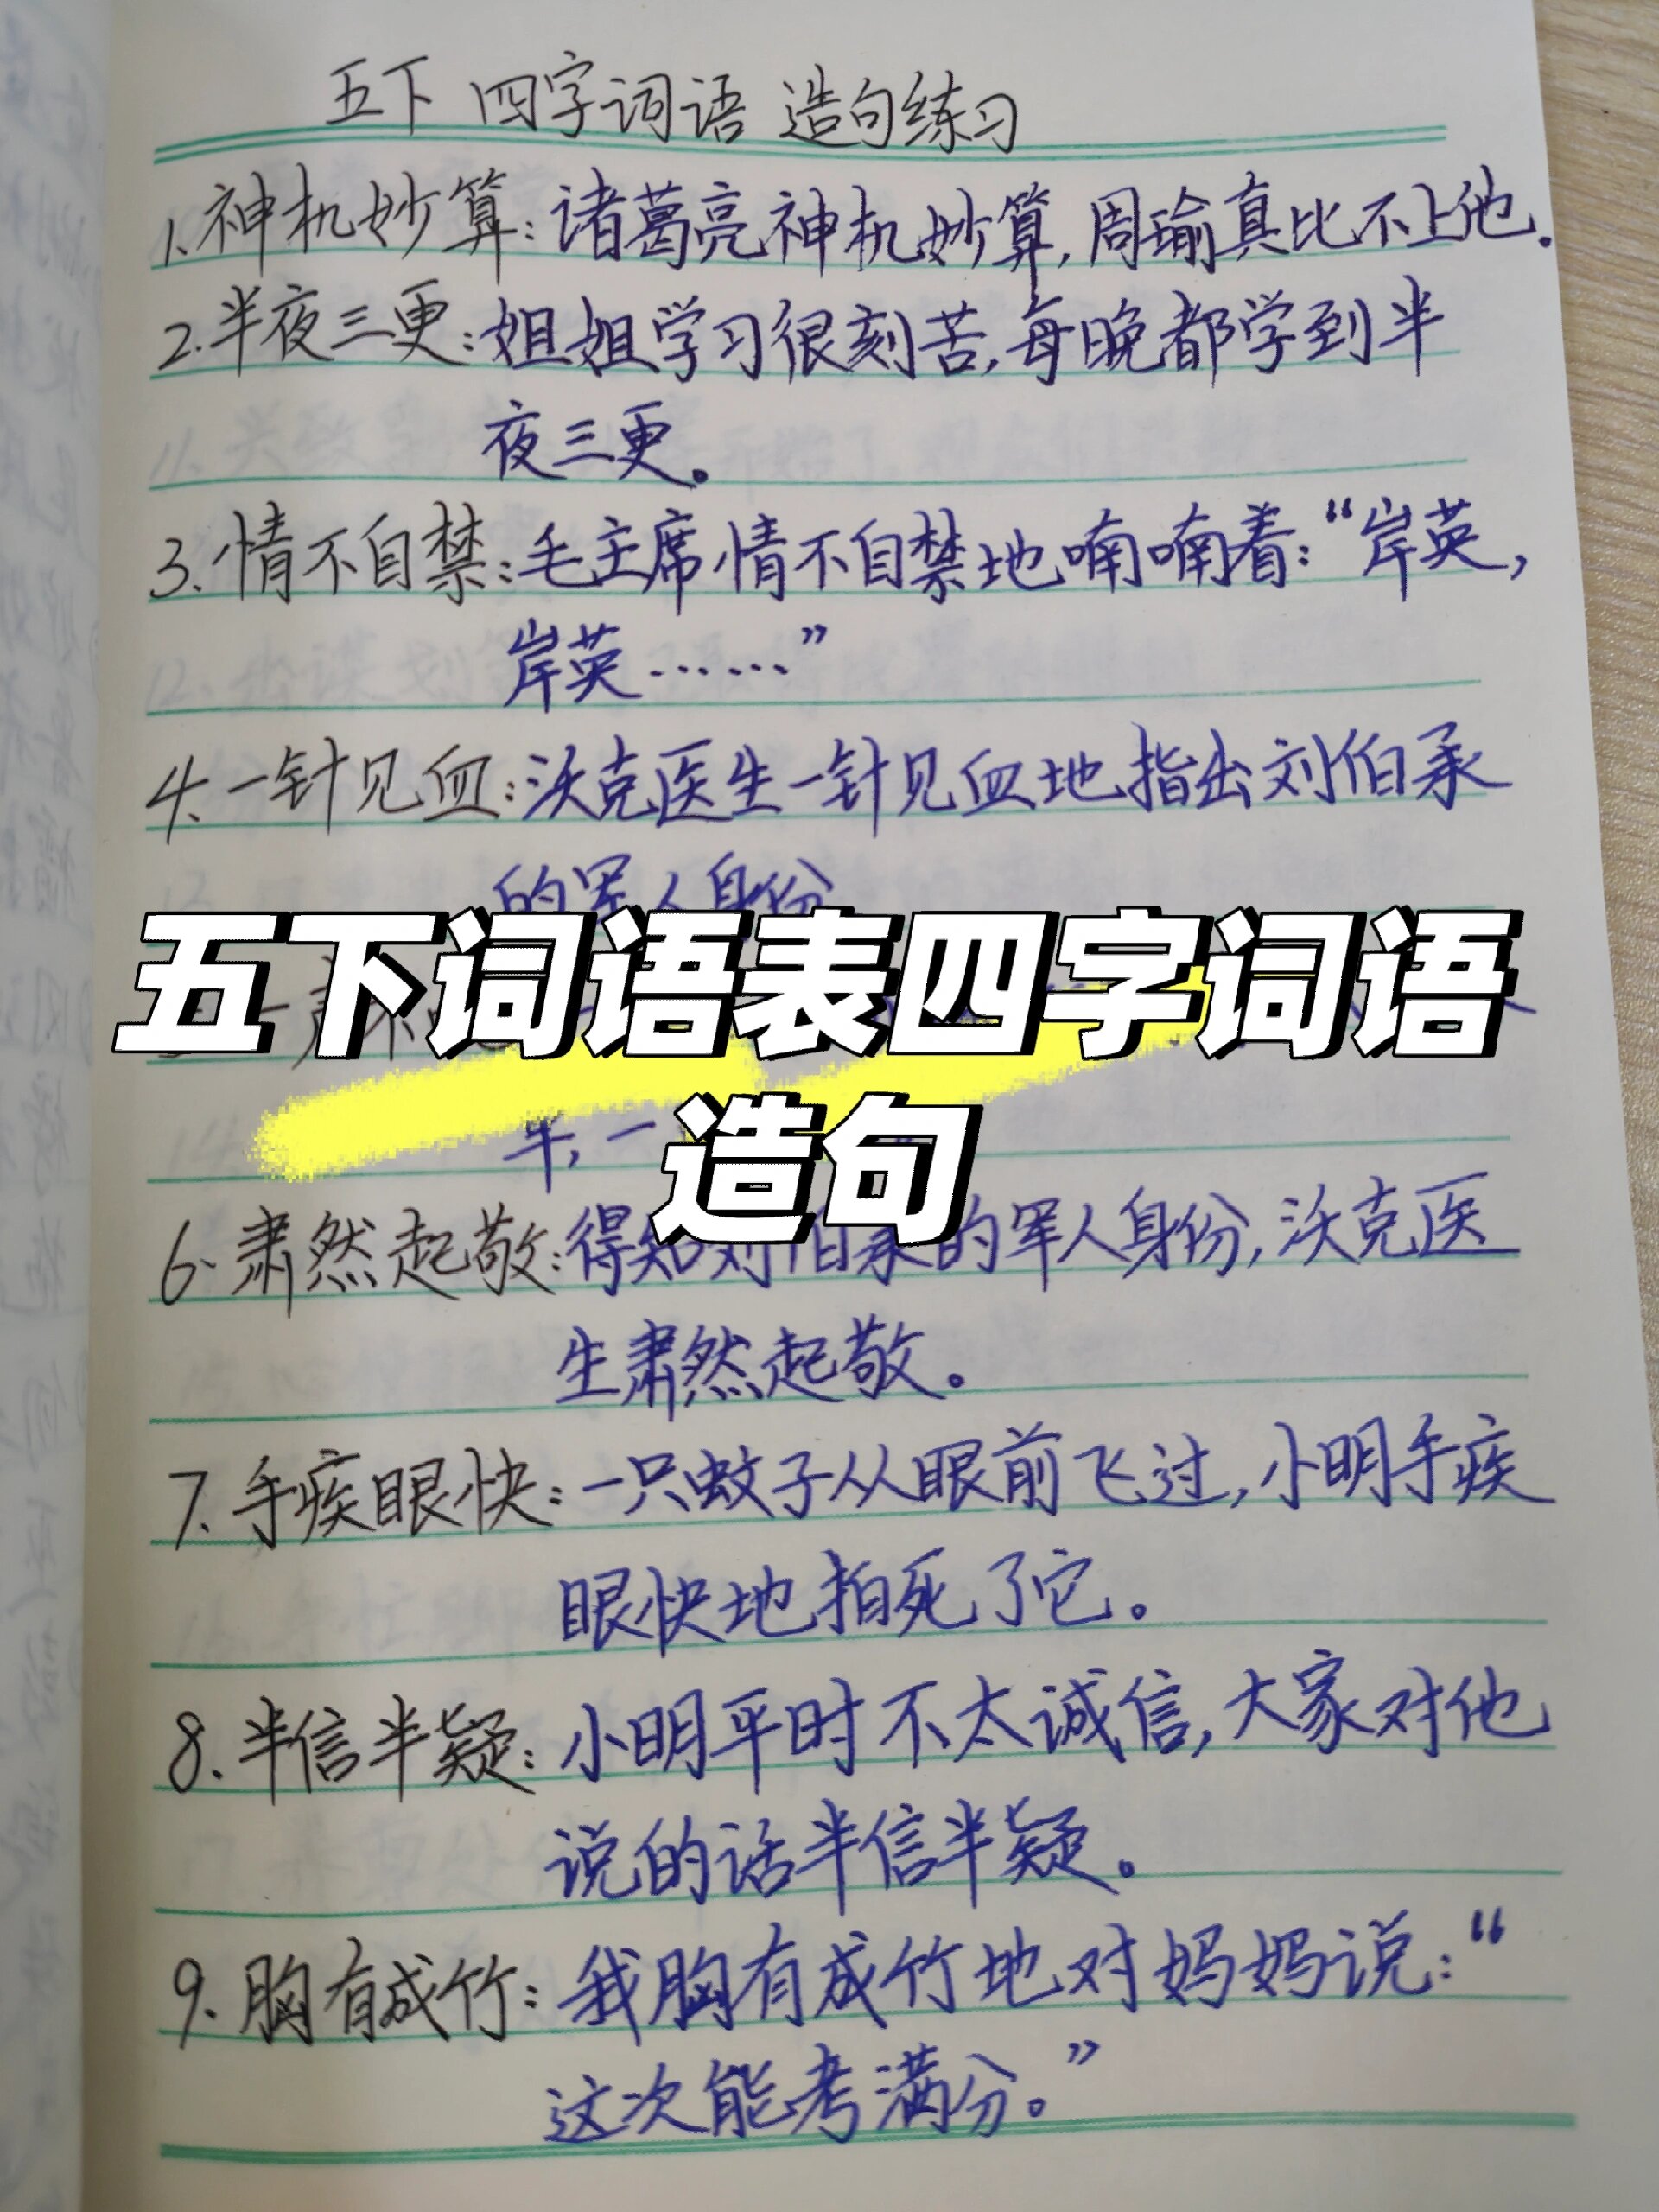 五下 四字词语 造句练习
1.神机妙算:诸葛亮神机妙算,周瑜真比不上他.
2.半夜三更:姐姐学习很刻苦,每晚都学到半
夜三更。
3.情不自禁:毛主席情不自禁地喃喃着:“岸英,
岸英……”
4.一针见血:沃克医生一针见血地指出刘伯承
的军人身份
五下词语表四字词语
造句
半,一
6.肃然起敬:得知刘伯承的军人身份,沃克医
生肃然起敬。
7.手疾眼快:一只蚊子从眼前飞过,小明手疾
眼快地拍死了它。
8.半信半疑:小明平时不太诚信,大家对他
说的话半信半疑。
9.胸有成竹:我胸有成竹地对妈妈说:“
这次能考满分。”